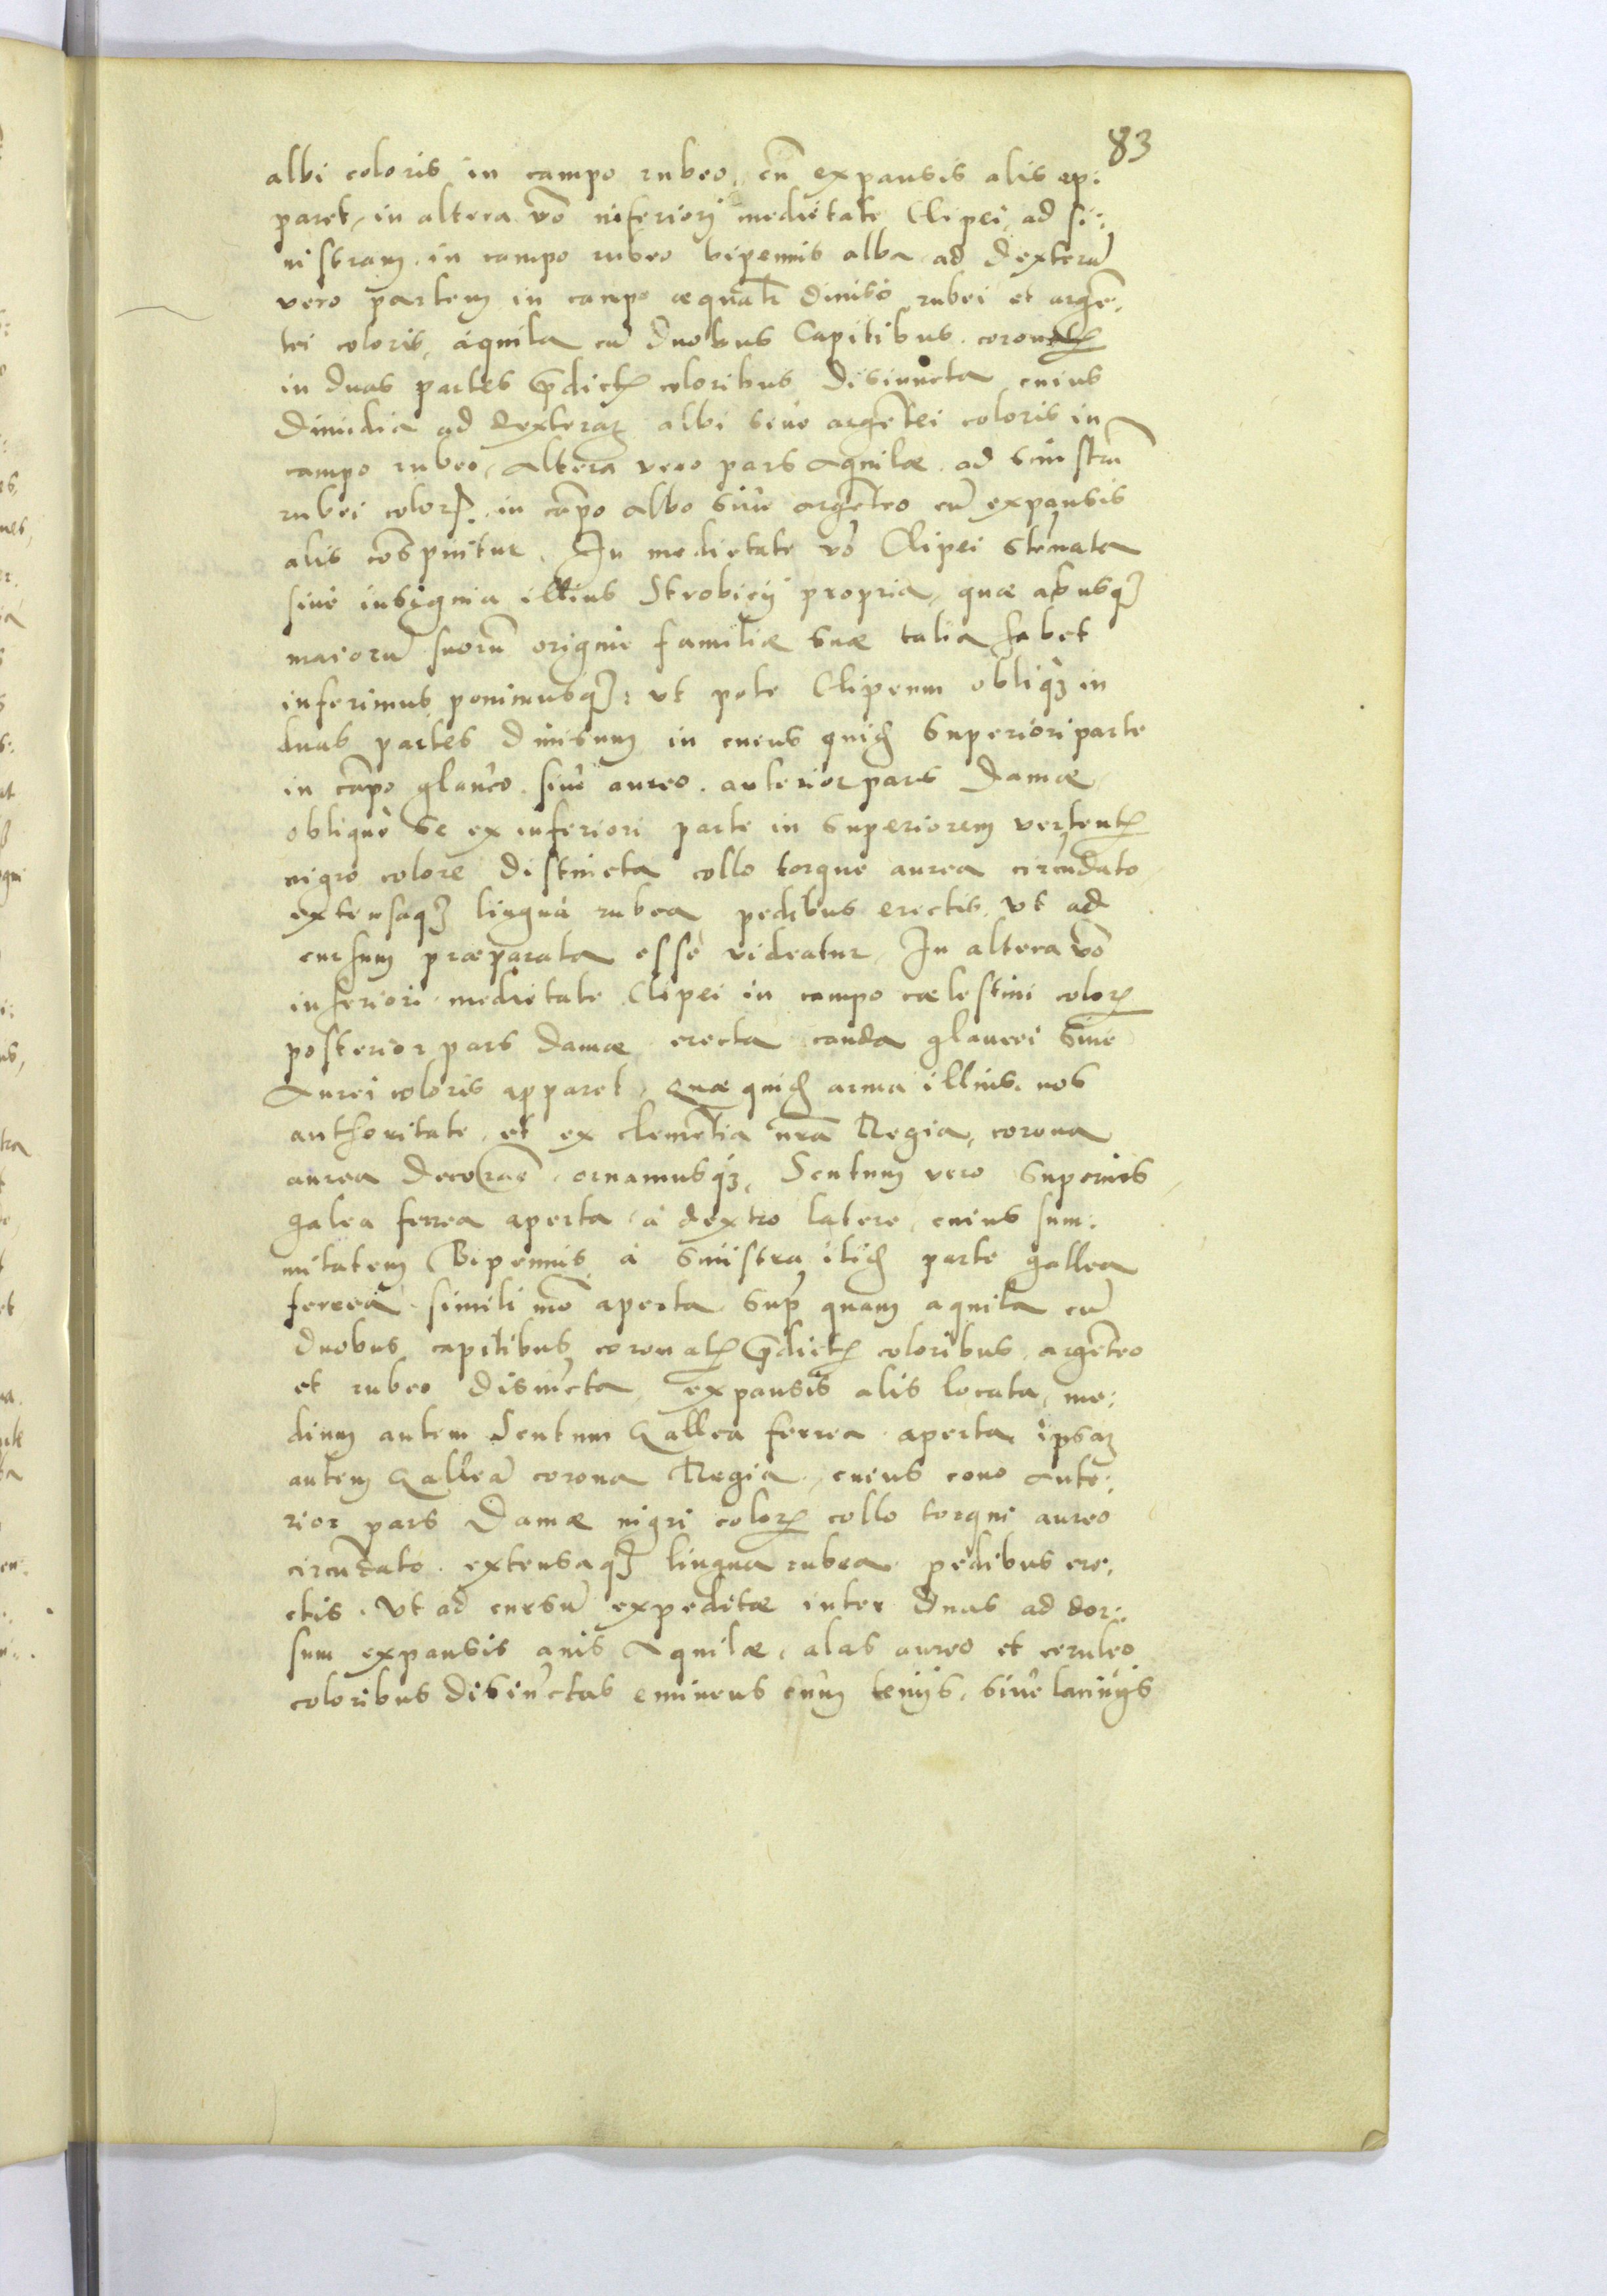 83
albi coloris in campo rubeo, cũ expansis alis ap:
paret, in altera vo inferiori medietate Clipei, ad si:
nistram in campo rubeo bipennis alba ad dexterã
vero partem in campo æqualr diviso rubei et argẽ:
tei coloris, aquila cũ duobus Capitibus coronatꝭ
in duas partes p̃dictꝭ coloribus disiuncta cuius
dimidia ad dexteraꝫ albi sive argẽtei coloris in
campo rubeo, altera vero pars Aquilæ ad sinistrã
rubei colorꝭ. in cãpo albo sive argẽteo cũ expansis
alis cõspicitur. In medietate vo Clipei stemata
sive insignia illius Strobicij propria, quæ ab usqꝫ
maiorũ suorũ origine familiæ suæ talia habet
inferimus ponimusqꝫ: ut pote Clipeum obliqꝫ in
duas partes divisum in cuius quidẽ superiori parte
in cãpo glauco sive aureo anterior pars Damæ
obliquè se ex inferiori parte in superiorem vertentꝭ
nigro colore distincta collo torque aurea circũdato
extensaqꝫ lingua rubea pedibus erectis, ut ad
cursum præparata esse videatur. In altera vo
inferiori medietate Clipei in campo cælestini colorꝭ
posterior pars damæ erecta cauda glaucei sive
Aurei coloris apparet, quæ quidẽ arma illius nos
authoritate et ex clemẽtia nrã Regia, corona
aurea decoramꝰ ornamusqꝫ, Scutum vero superius
galea ferrea aperta à dextro latere, cuius sum:
mitatem Bipennis à sinistra itidẽ parte gallea
ferrea simili mõ aperta sup quam aquila cũ
duobus capitibus coronatꝭ p̃dictꝭ coloribus argẽteo
et rubeo disiũcta expansis alis locata, me:
dium autem Scutum Gallea ferrea aperta ipsaꝫ
autem Galleã corona Regia, cuius cono Ante:
rior pars Damæ nigri colorꝭ collo torqui aureo
circũdato extensaqꝫ lingua rubea pedibus ere:
ctis. Ut ad cursũ expeditæ inter duas ad dor:
sum expansis avis Aquilæ, alas aureo et ceruleo
coloribus disiũctas eminens cum tenijs, sive lacinijs